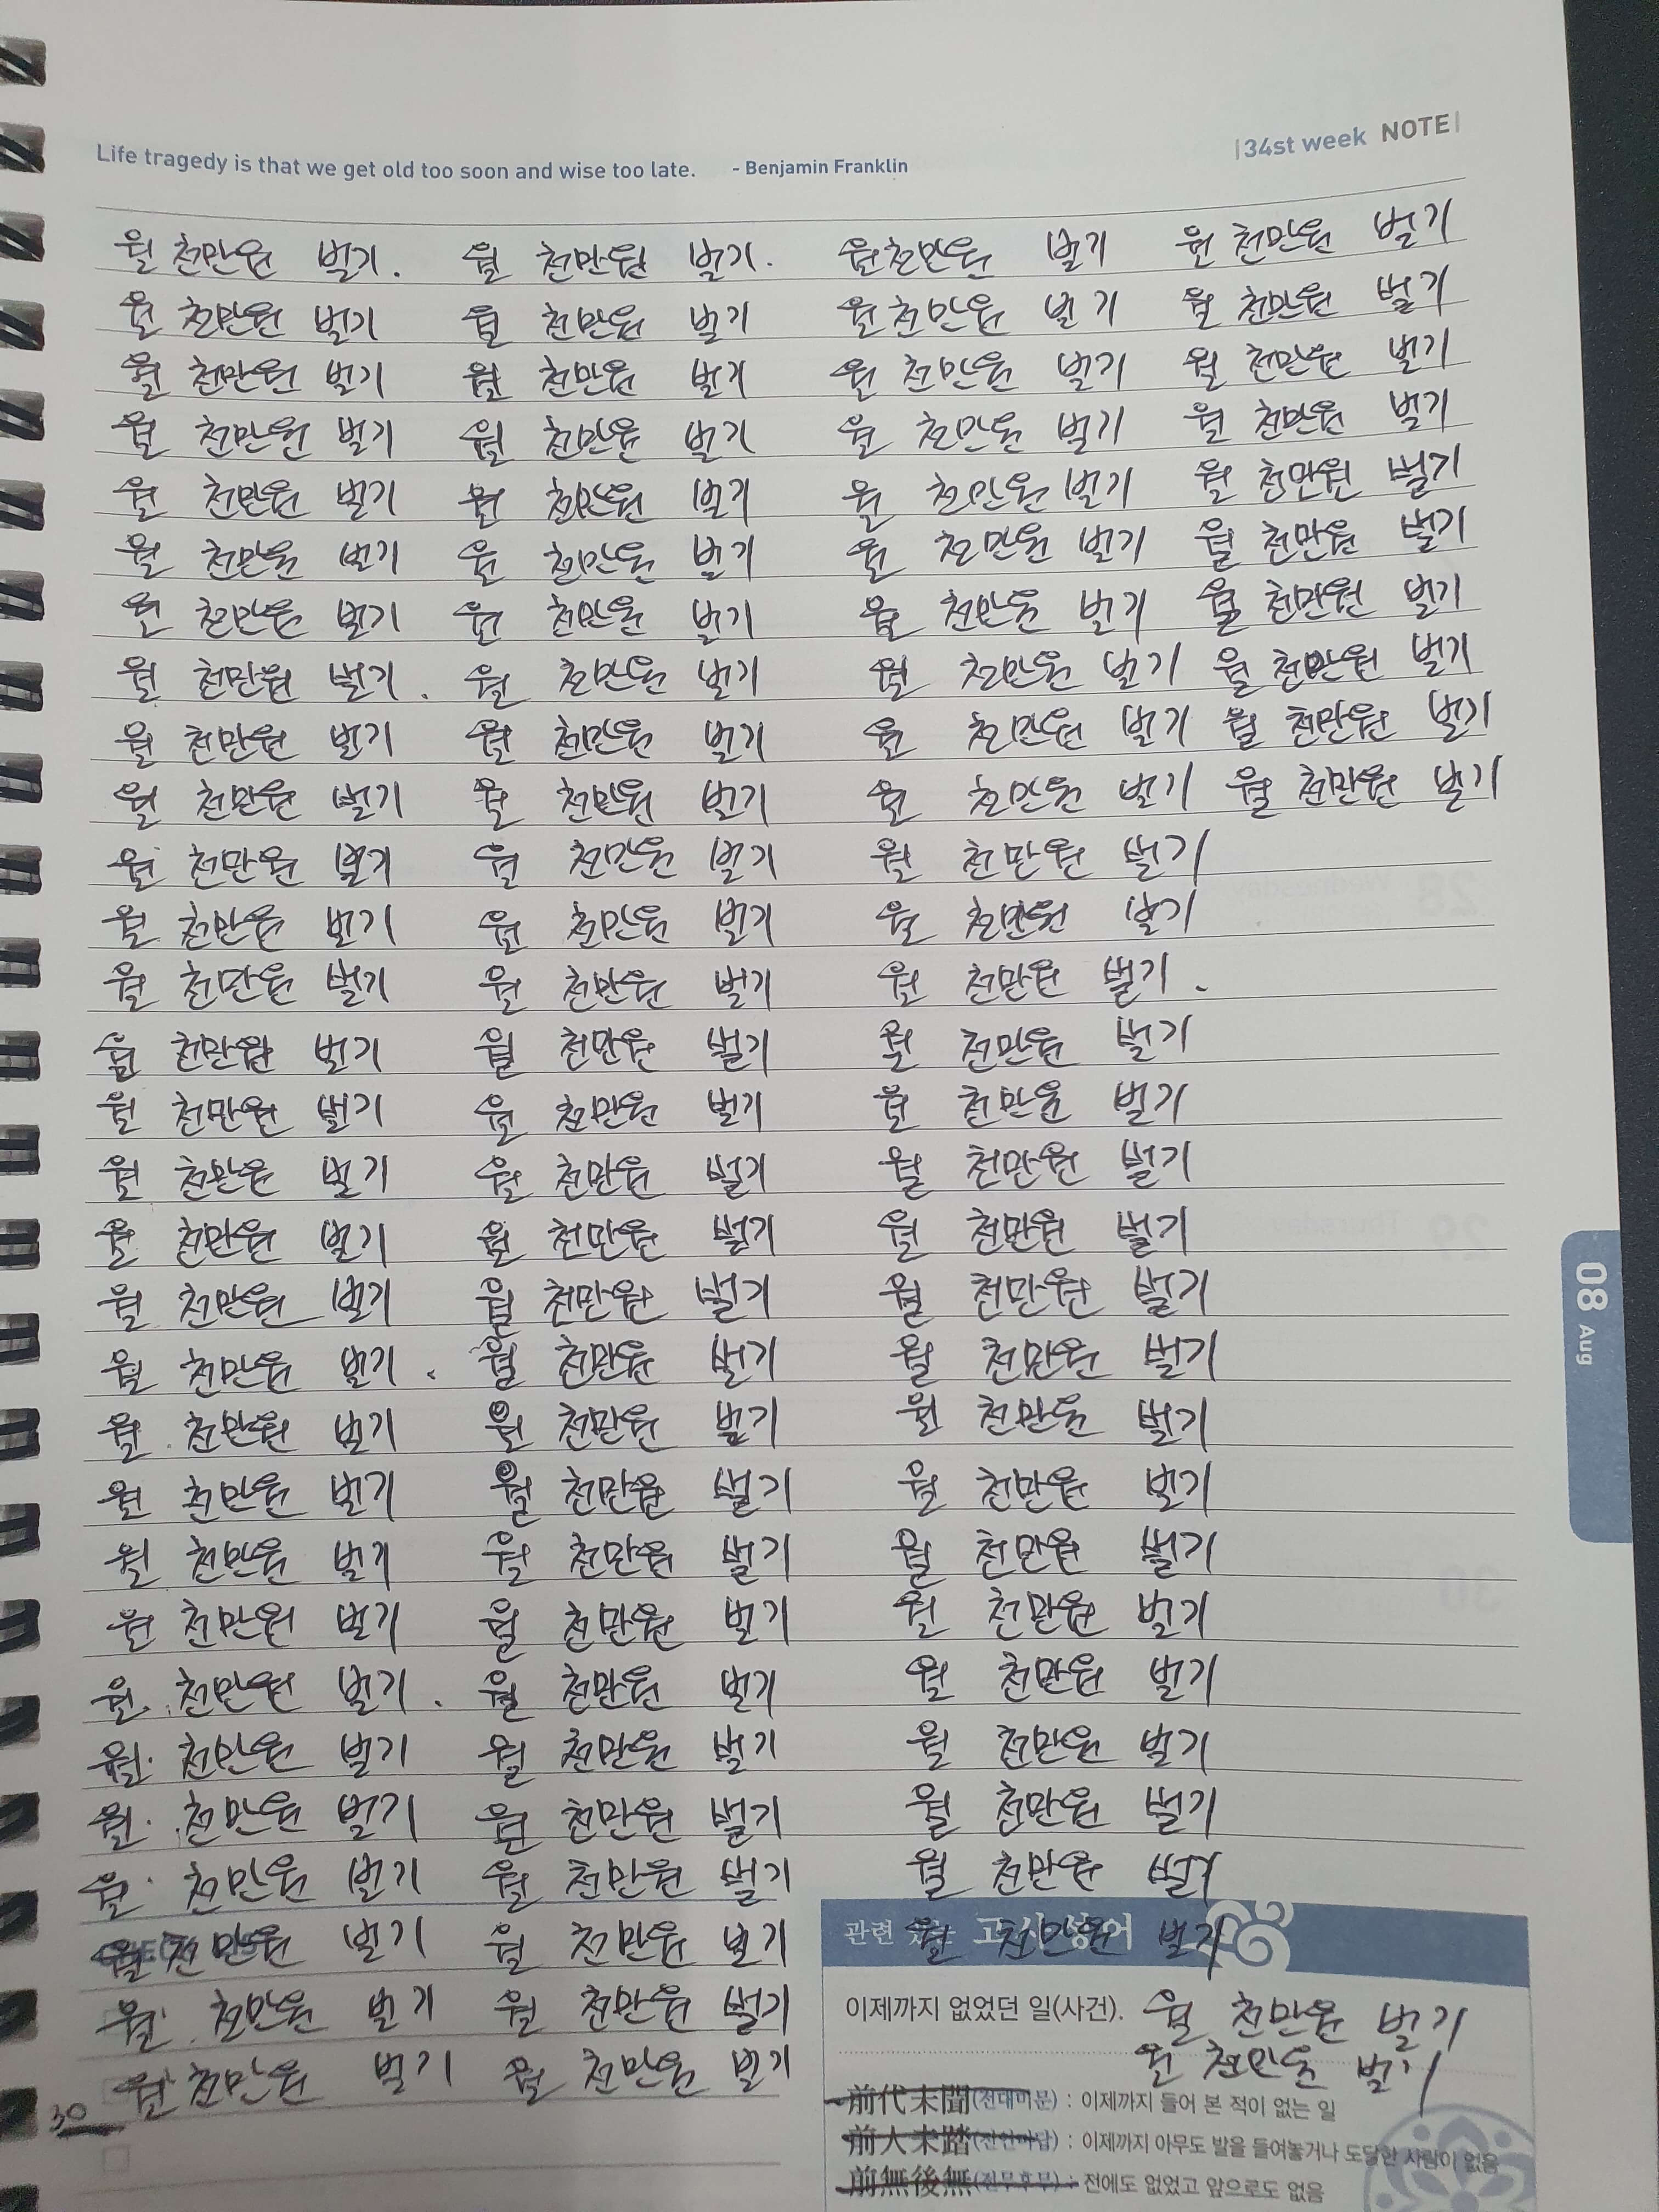 Life tragedy is that we get old too soon and wise too late. - Benjamin Franklin |34st week NOTE|
월 천만원 벌기. 월 천만원 벌기. 월 천만원 벌기 월 천만원 벌기
월 천만원 벌기 월 천만원 벌기 월 천만원 벌기 월 천만원 벌기
월 천만원 벌기 월 천만원 벌기 월 천만원 벌기 월 천만원 벌기
월 천만원 벌기 월 천만원 벌기 월 천만원 벌기 월 천만원 벌기
월 천만원 벌기 월 천만원 벌기 월 천만원 벌기 월 천만원 벌기
월 천만원 벌기 월 천만원 벌기 월 천만원 벌기 월 천만원 벌기
월 천만원 벌기 월 천만원 벌기 월 천만원 벌기 월 천만원 벌기
월 천만원 벌기. 월 천만원 벌기 월 천만원 벌기 월 천만원 벌기
월 천만원 벌기 월 천만원 벌기 월 천만원 벌기 월 천만원 벌기
월 천만원 벌기 월 천만원 벌기 월 천만원 벌기 월 천만원 벌기
월 천만원 벌기 월 천만원 벌기 월 천만원 벌기
월 천만원 벌기 월 천만원 벌기 월 천만원 벌기
월 천만원 벌기 월 천만원 벌기 월 천만원 벌기.
월 천만원 벌기 월 천만원 벌기 월 천만원 벌기
월 천만원 벌기 월 천만원 벌기 월 천만원 벌기
월 천만원 벌기 월 천만원 벌기 월 천만원 벌기
월 천만원 벌기 월 천만원 벌기 월 천만원 벌기
월 천만원 벌기 월 천만원 벌기 월 천만원 벌기
월 천만원 벌기. 월 천만원 벌기 월 천만원 벌기
월 천만원 벌기 월 천만원 벌기 월 천만원 벌기
월 천만원 벌기 월 천만원 벌기 월 천만원 벌기
월 천만원 벌기 월 천만원 벌기 월 천만원 벌기
월 천만원 벌기 월 천만원 벌기 월 천만원 벌기
월. 천만원 벌기. 월 천만원 벌기 월 천만원 벌기
월. 천만원 벌기 월 천만원 벌기 월 천만원 벌기
월. 천만원 벌기 월 천만원 벌기 월 천만원 벌기
월. 천만원 벌기 월 천만원 벌기 월 천만원 벌기
월 천만원 벌기 월 천만원 벌기 월 천만원 벌기
월. 천만원 벌기 월 천만원 벌기
30 월 천만원 벌기 월 천만원 벌기
08 Aug
관련 있는 고사성어
이제까지 없었던 일(사건). 월 천만원 벌기
월 천만원 벌기
前代未聞(전대미문) : 이제까지 들어 본 적이 없는 일
前人未踏(전인미답) : 이제까지 아무도 발을 들여놓거나 도달한 사람이 없음
前無後無(전무후무) : 전에도 없었고 앞으로도 없음